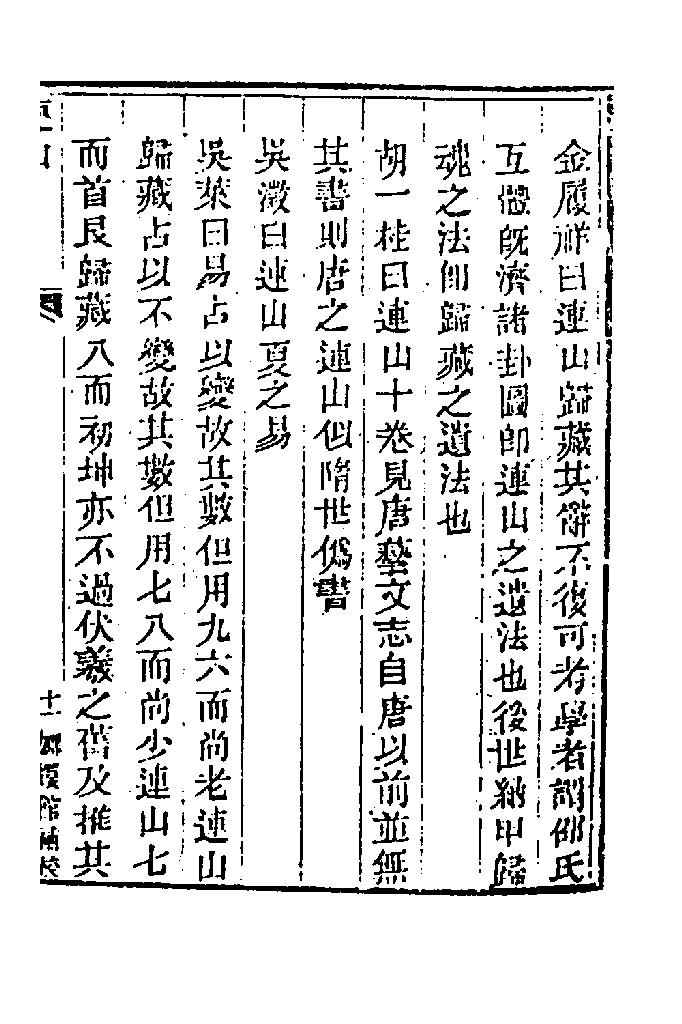 金履祥曰連山歸藏其辭不復可考學者謂邵氏
互體旣濟諸卦圖卽連山之遺法也後世納甲歸
魂之法卽歸藏之遺法也
胡一桂曰連山十卷見唐藝文志自唐以前並無
其書則唐之連山似隋世僞書
吳澂曰連山夏之易
吳萊曰易占以變故其數但用九六而尚老連山
歸藏占以不變故其數但用七八而尚少連山七
而首艮歸藏八而初坤亦不過伏羲之舊及推其
山 十一 嫏嬛館補校